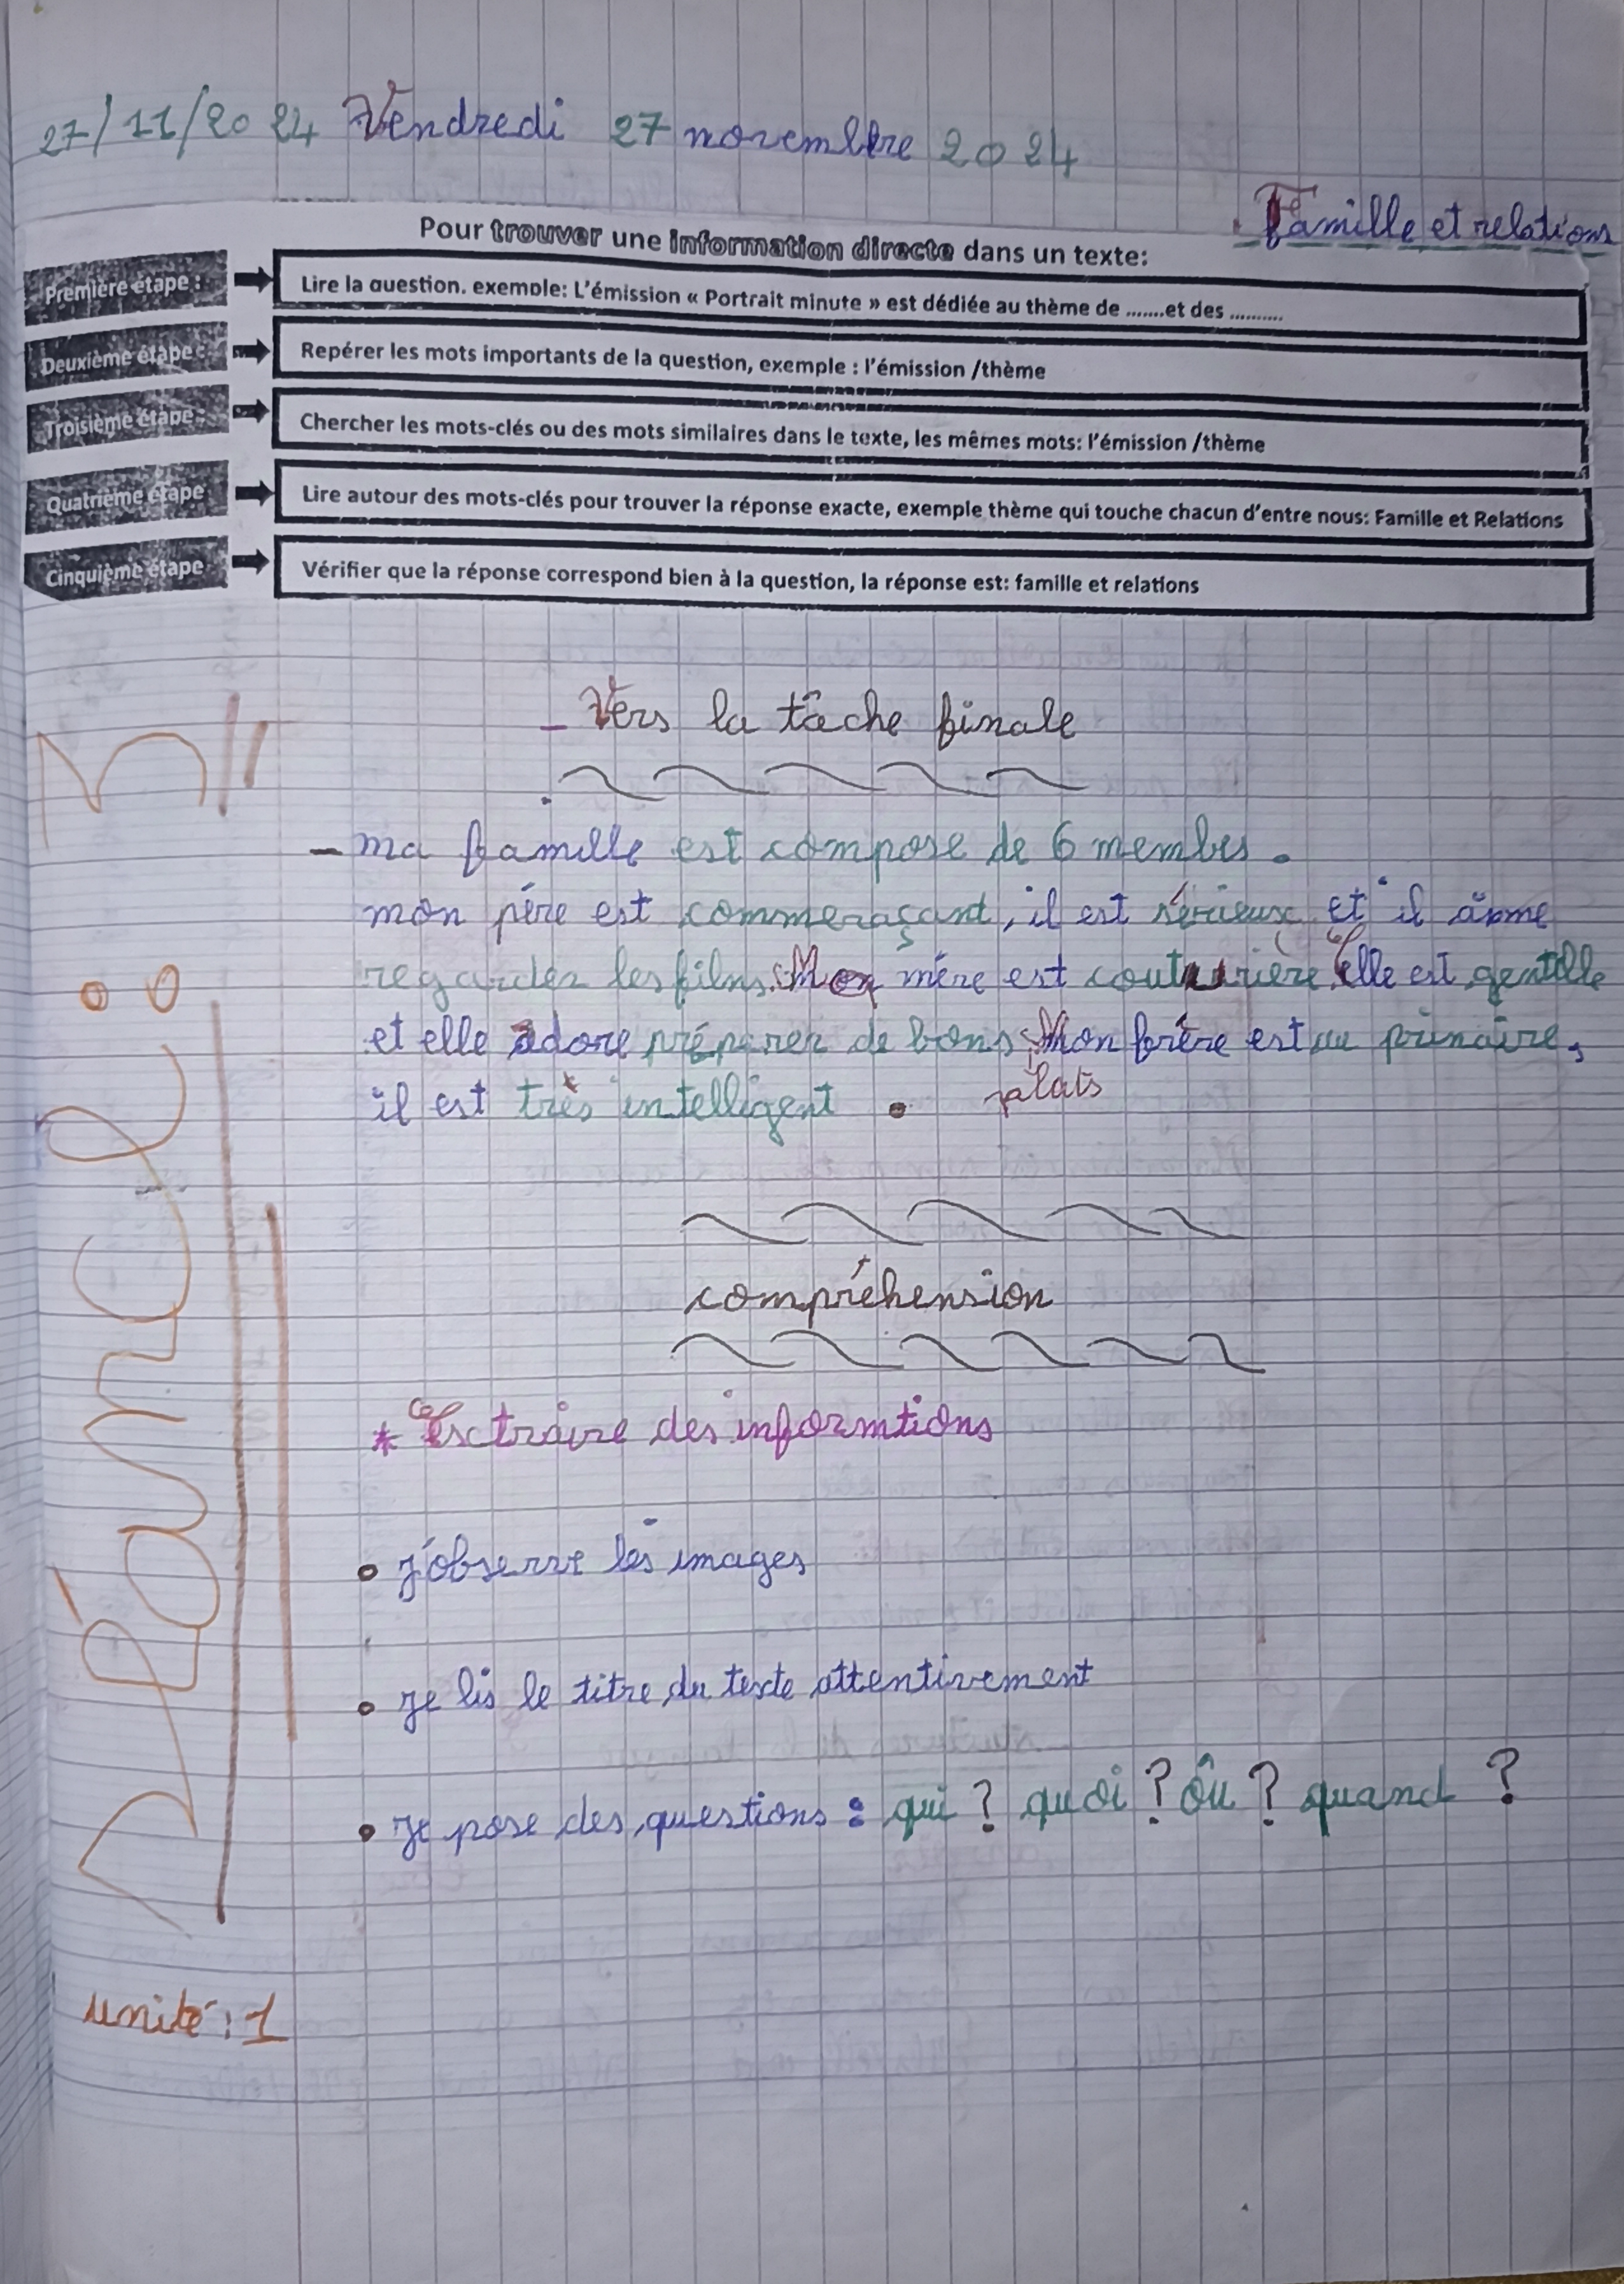 27/11/2024 Vendredi 27 novembre 2024
Famille et relations
Pour trouver une information directe dans un texte:
Première étape : Lire la question. exemple: L'émission « Portrait minute » est dédiée au thème de .......et des ..........
Deuxième étape : Repérer les mots importants de la question, exemple : l'émission /thème
Troisième étape : Chercher les mots-clés ou des mots similaires dans le texte, les mêmes mots: l'émission /thème
Quatrième étape Lire autour des mots-clés pour trouver la réponse exacte, exemple thème qui touche chacun d'entre nous: Famille et Relations
Cinquième étape Vérifier que la réponse correspond bien à la question, la réponse est: famille et relations
- Vers la tâche finale
- ma famille est compose de 6 membes.
mon père est commeraçant, il est sérieux et il aime
regarder les films. Mon mère est couturière, elle est gentille
et elle adore préparer de bons Mon frère est au primaire,
plats
il est très intelligent .
compréhension
* Extraire des informtions
• j'observe les images
• je lis le titre du texte attentivement
• je pose des questions : qui ? quoi ? où ? quand ?
Séance : 3
unité : 1